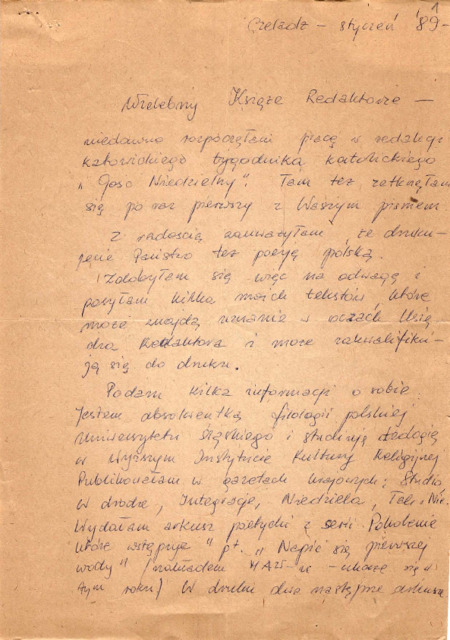 Czeladź - styczeń '89 -
1
Wielebny Księże Redaktorze —
niedawno rozpoczęłam pracę w redakcji
katowickiego tygodnika katolickiego
"Gość Niedzielny". Tam też zetknęłam
się po raz pierwszy z Waszym pismem.
Z radością zauważyłam, że druku-
jecie Państwo też poezję polską.
Zdobyłam się więc na odwagę i
posyłam kilka moich tekstów, które
może znajdą uznanie w oczach Księ
dza Redaktora i może zakwalifiku-
ją się do druku.
Podam kilka informacji o sobie
Jestem absolwentką filologii polskiej
Uniwersytetu Śląskiego i studiuję teologię
w Wyższym Instytucie Kultury Religijnej
Publikowałam w gazetach krajowych: Studio
W drodze, Integracje, Niedziela,
Wydałam arkusz poetycki z serii "Pokolenie
które wstępuje" pt. "Napić się pierwszej
wody" (nakładem - ukaże się w
tym roku) W druku dwa następne arkusze